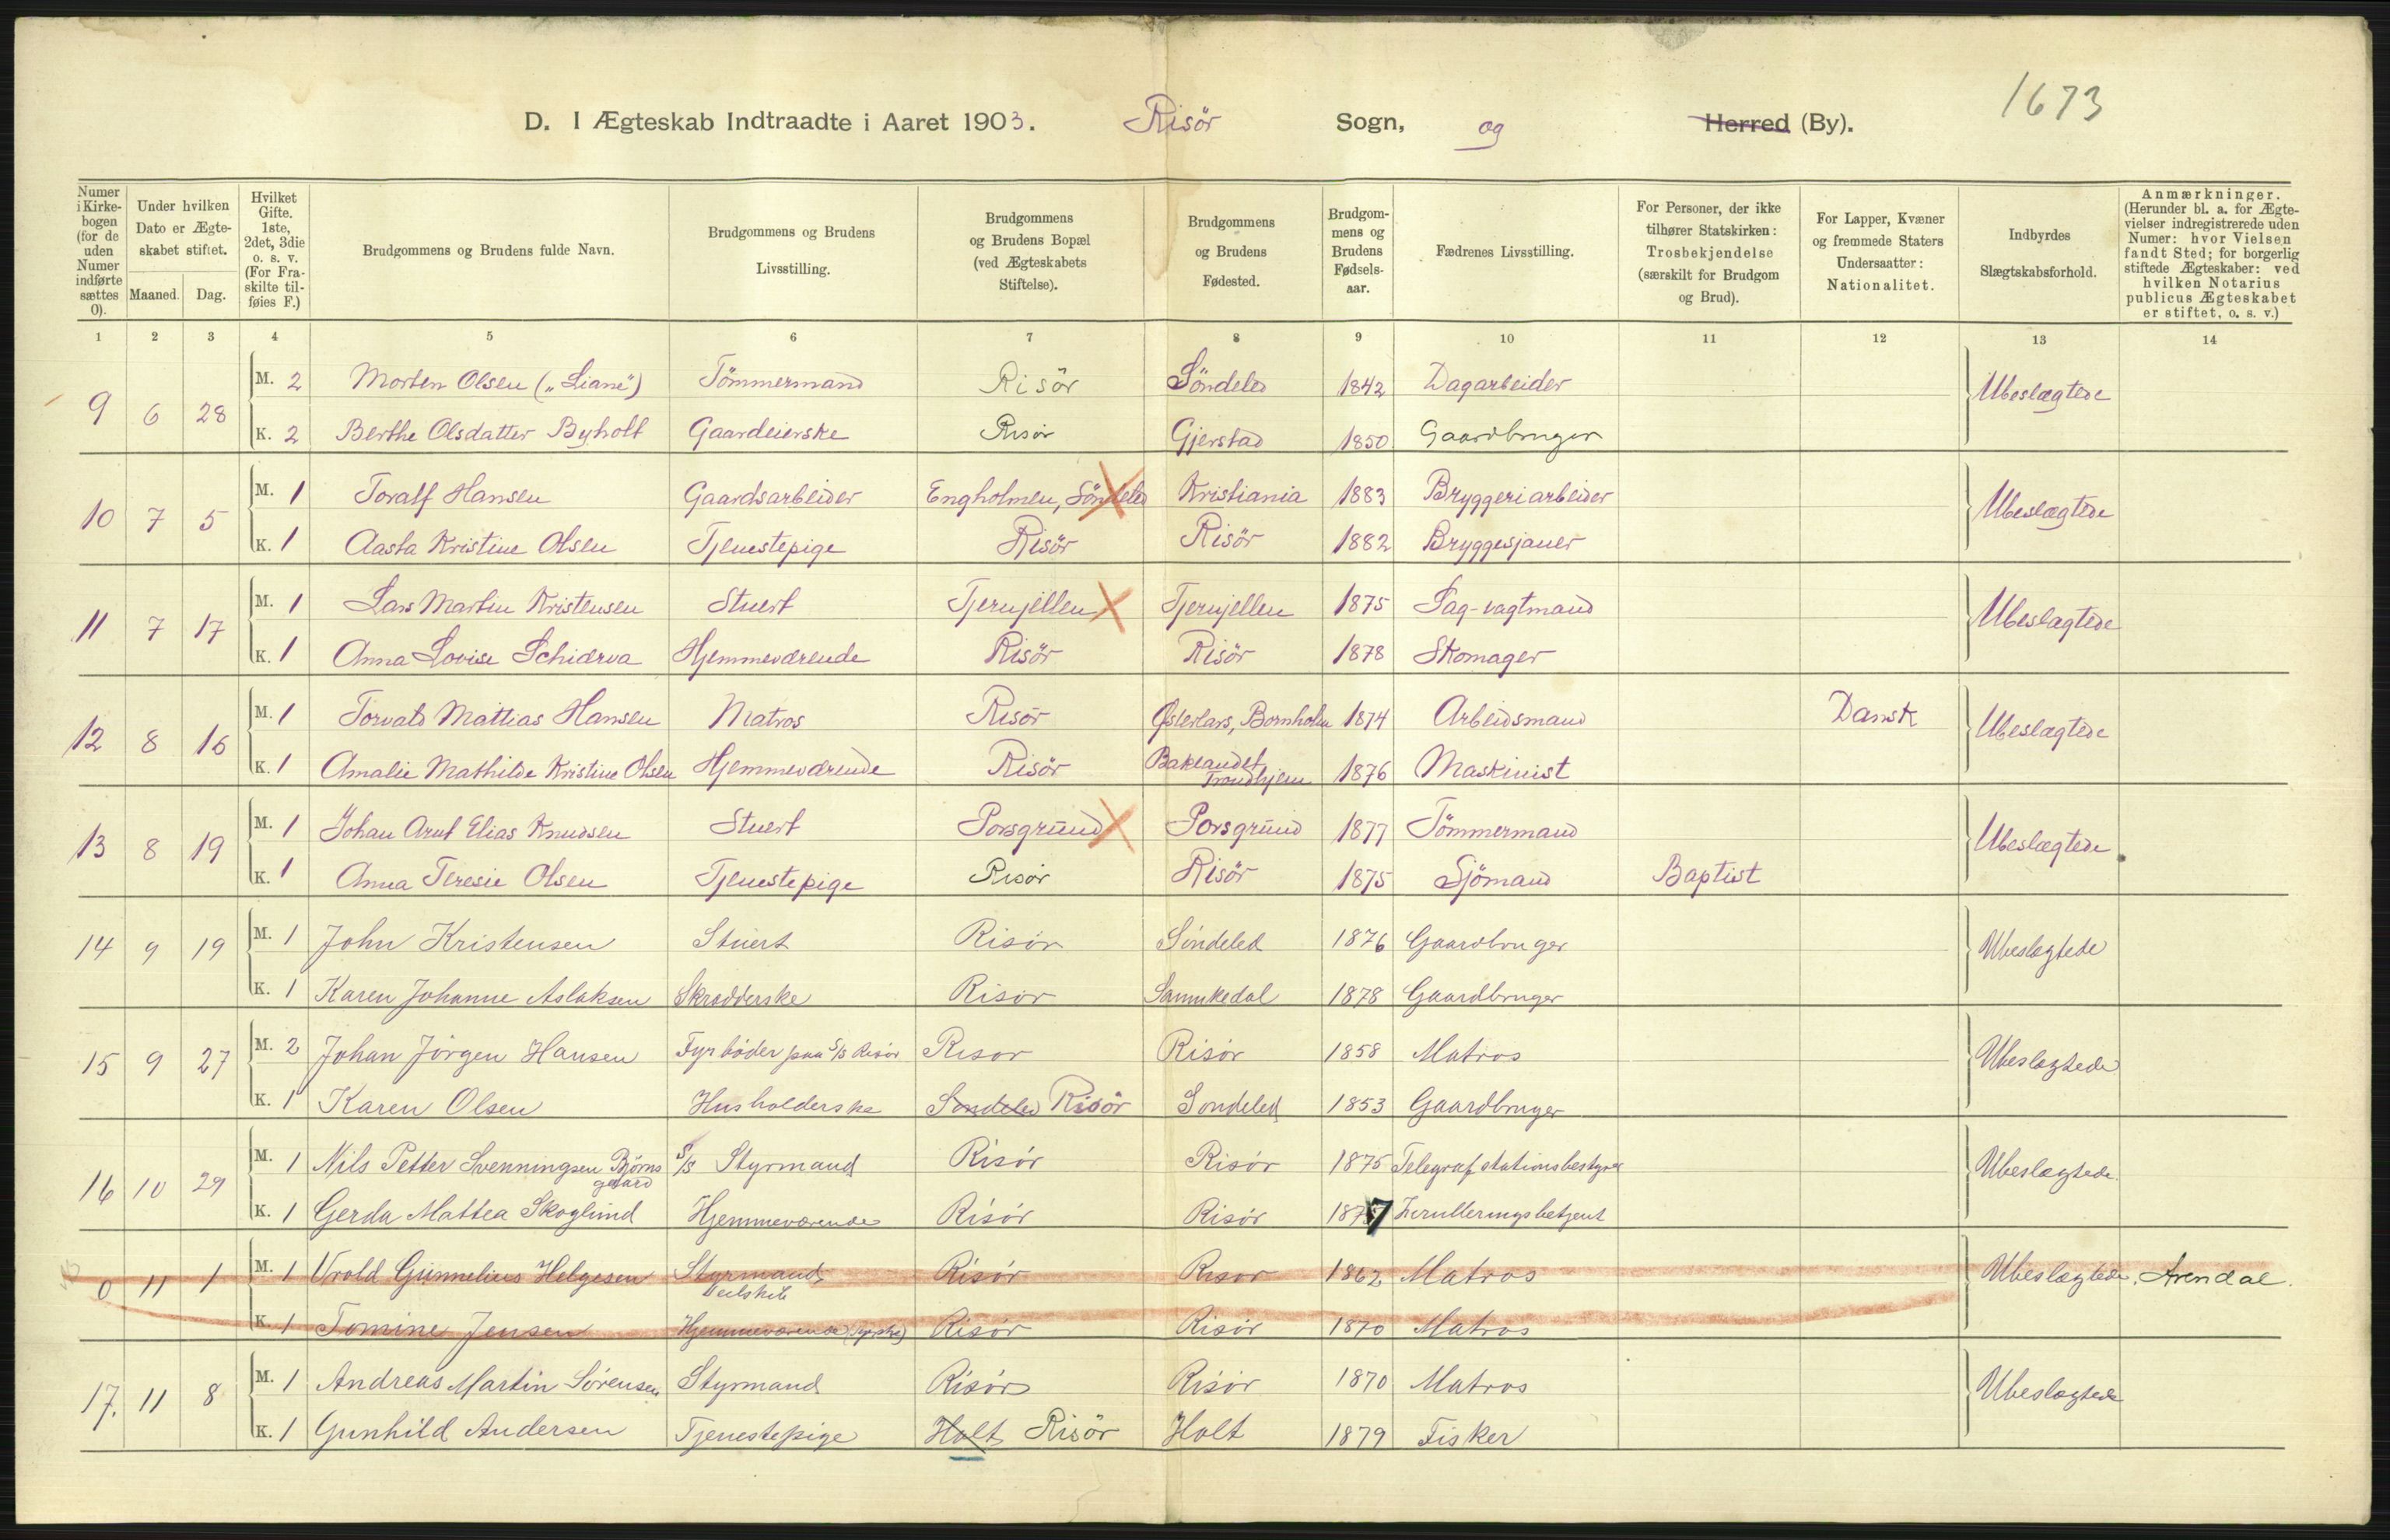 1673
D. I Ægteskab Indtraadte i Aaret 1903. Risör Sogn, og Herred (By).
Numer i Kirkebogen (for de uden Numer indførte sættes 0).
Under hvilken Dato er Ægteskabet stiftet.
Maaned. Dag.
Hvilket Gifte. 1ste, 2det, 3die o. s. v. (For Fraskilte tilføies F.)
Brudgommens og Brudens fulde Navn.
Brudgommens og Brudens Livsstilling.
Brudgommens og Brudens Bopæl (ved Ægteskabets Stiftelse).
Brudgommens og Brudens Fødested.
Brudgommens og Brudens Fødselsaar.
Fædrenes Livsstilling.
For Personer, der ikke tilhører Statskirken: Trosbekjendelse (særskilt for Brudgom og Brud).
For Lapper, Kvæner og fremmede Staters Undersaatter: Nationalitet.
Indbyrdes Slægtskabsforhold.
Anmærkninger. (Herunder bl. a. for Ægtevielser indregistrerede uden Numer: hvor Vielsen fandt Sted; for borgerlig stiftede Ægteskaber: ved hvilken Notarius publicus Ægteskabet er stiftet, o. s. v.)
1 2 3 4 5 6 7 8 9 10 11 12 13 14
9 6 28 M. 2 Morten Olsen („Liane") Tömmermand Risör Söndeled 1842 Dagarbeider Ubeslægtede
K. 2 Berthe Olsdatter Byholt Gaardeierske Risör Gjerstad 1850 Gaardbruger
10 7 5 M. 1 Toralf Hansen Gaardsarbeider Engholmen, Söndeled Kristiania 1883 Bryggeriarbeider Ubeslægtede
K. 1 Aasta Kristine Olsen Tjenestepige Risör Risör 1882 Bryggesjauer
11 7 17 M. 1 Lars Martin Kristensen Stuert Tjernjellen Tjernjellen 1875 Sag-vagtmand Ubeslægtede
K. 1 Anna Lovise Schiærva Hjemmeværende Risör Risör 1878 Skomager
12 8 16 M. 1 Torvald Mattias Hansen Matros Risör Østerlars, Bornholm 1874 Arbeidsmand Dansk Ubeslægtede
K. 1 Amalie Mathilde Kristine Olsen Hjemmeværende Risör Baklandet Trondhjem 1876 Maskinist
13 8 19 M. 1 Johan Arnt Elias Knudsen Stuert Porsgrund Porsgrund 1877 Tömmermand Ubeslægtede
K. 1 Anna Teresie Olsen Tjenestepige Risör Risör 1875 Sjömand Baptist
14 9 19 M. 1 John Kristensen Stuert Risör Söndeled 1876 Gaardbruger Ubeslægtede
K. 1 Karen Johanne Aslaksen Skrædderske Risör Sannikedal 1878 Gaardbruger
15 9 27 M. 2 Johan Jörgen Hansen Fyrböder paa S/S Risör Risør Risör 1858 Matros Ubeslægtede
K. 1 Karen Olsen Husholderske Söndeled Risör Söndeled 1853 Gaardbruger
16 10 29 M. 1 Nils Petter Svenningsen Bjørnsgaard S/S Styrmand Risör Risör 1875 Telegrafstationsbestyrer Ubeslægtede
K. 1 Gerda Mattea Skoglund Hjemmeværende Risör Risör 1877 Inrulleringsbetjent
0 11 1 M. 1 Vrold Gunnelius Helgesen Styrmand Seilskib Risör Risør 1862 Matros Ubeslægtede. Arendal.
K. 1 Tomine Jensen Hjemmeværende (Syerske) Risör Risör 1870 Matros
17. 11 8 M. 1 Andreas Martin Sörensen Styrmand Risör Risör 1870 Matros Ubeslægtede
K. 1 Gunhild Andersen Tjenestepige Holt Risör Holt 1879 Fisker